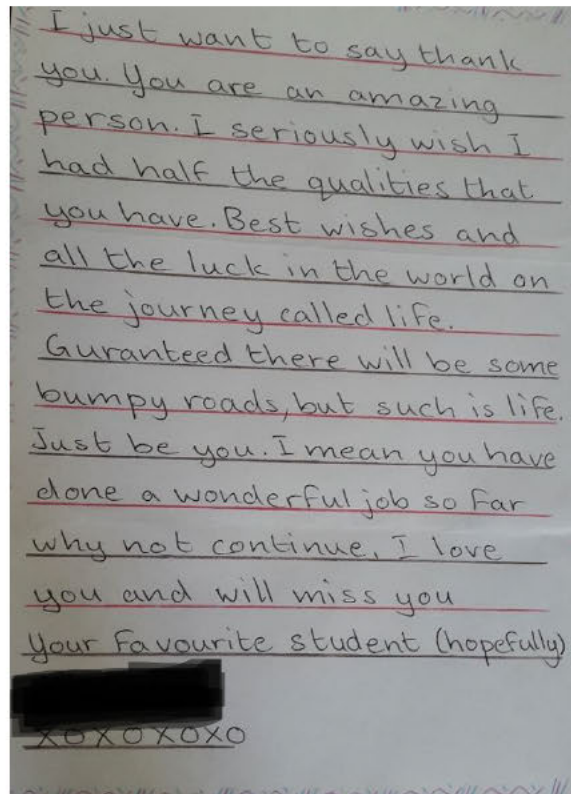 I just want to say thank
you. You are an amazing
person. I seriously wish I
had half the qualities that
you have. Best wishes and
all the luck in the world on
the journey called life.
Guranteed there will be some
bumpy roads, but such is life.
Just be you. I mean you have
done a wonderful job so far
why not continue. I love
you and will miss you
Your favourite student (hopefully)
XOXOXOXO